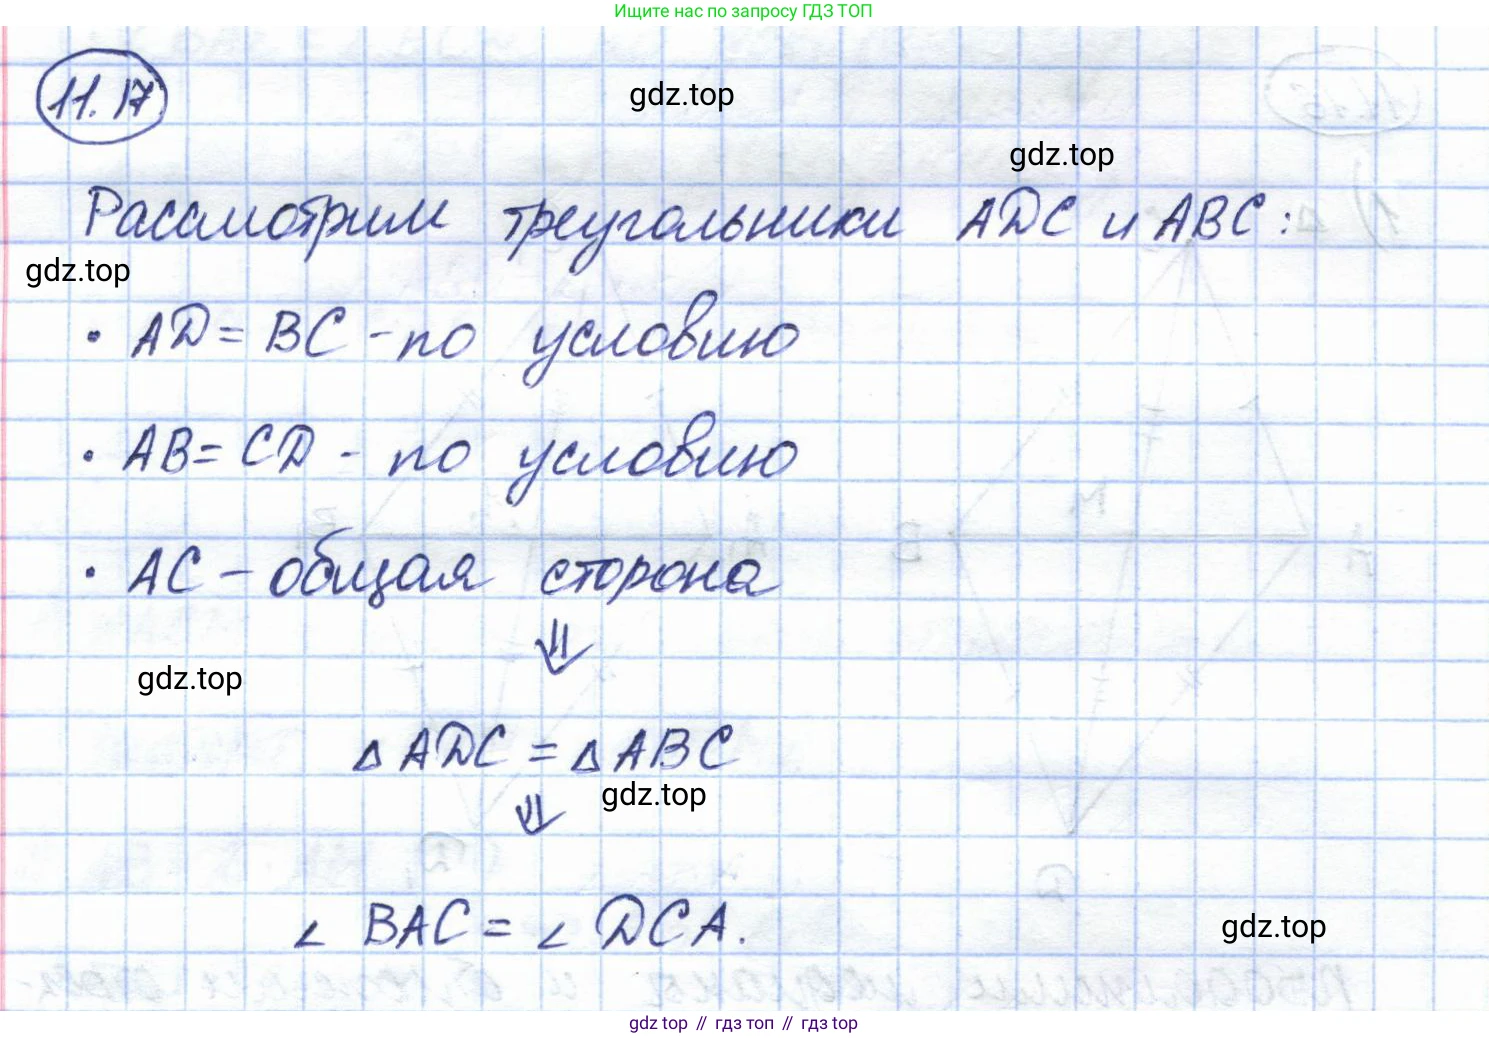 Ищите нас по запросу ГДЗ ТОП
11.17
gdz.top
gdz.top
Рассмотрим треугольники ADC и ABC:
gdz.top
· AD = BC - по условию
· AB = CD - по условию
· AC - общая сторона
⇓
gdz.top
△ ADC = △ ABC
gdz.top
⇓
∠ BAC = ∠ DCA.
gdz.top
gdz top // гдз топ // гдз top